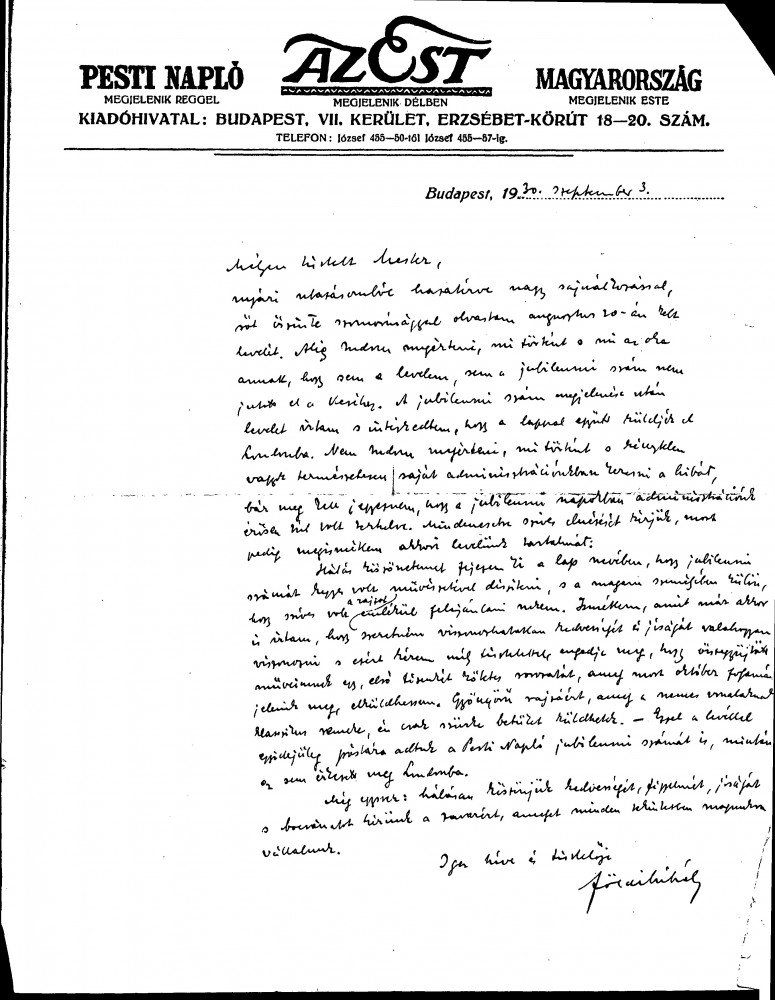 PESTI NAPLÓ
MEGJELENIK REGGEL
AZ EST
MEGJELENIK DÉLBEN
MAGYARORSZÁG
MEGJELENIK ESTE
KIADÓHIVATAL: BUDAPEST, VII. KERÜLET, ERZSÉBET-KÖRÚT 18—20. SZÁM.
TELEFON: József 455—50-től József 455—57-ig.
Budapest, 1930. szeptember 3.
Mélyen tisztelt Mester,
nyári utazásomból hazatérve nagy sajnálkozással,
sőt őszinte szomorúsággal olvastam augusztus 20-án kelt
levelét. Alig tudom megérteni, mi történt s mi az oka
annak, hogy sem a levelem, sem a jubileumi szám nem
jutott el a kezéhez. A jubileumi szám megjelenése után
levelet írtam s intézkedtem, hogy a lappal együtt küldjék el
Londonba. Nem tudom megérteni, mi történt s kénytelen
vagyok természetesen saját adminisztrációnkban keresni a hibát,
bár meg kell jegyeznem, hogy a jubileumi napokban adminisztrációnk
erősen túl volt terhelve. Mindenesetre szíves elnézését kérjük, most
pedig megismétlem akkori levelünk tartalmát:
Hálás köszönetemet fejezem ki a lap nevében, hogy jubileumi
számát kegyes volt művészetével díszíteni, s a magam személyében külön,
hogy szíves volt a rajzot emlékül felajánlani nekem. Ismétlem, amit már akkor
is írtam, hogy szeretném viszonozhatatlan kedvességét és jóságát valahogyan
viszonozni s ezért kérem mély tisztelettel, engedje meg, hogy összegyűjtött
műveimnek egy, első tizenkét kötetes sorozatát, amely most október folyamán
jelenik meg, elküldhessem. Gyönyörű rajzáért, amely a nemes vonalaknak
klasszikus remeke, én csak szürke betűket küldhetek. — Ezzel a levéllel
egyidejűleg postára adtuk a Pesti Napló jubileumi számát is, miután
az sem érkezett meg Londonba.
Még egyszer: hálásan köszönjük kedvességét, figyelmét, jóságát
s bocsánatot kérünk a zavarért, amelyet minden tekintetben magunkra
vállalunk.
Igaz híve és tisztelője
Földi Mihály